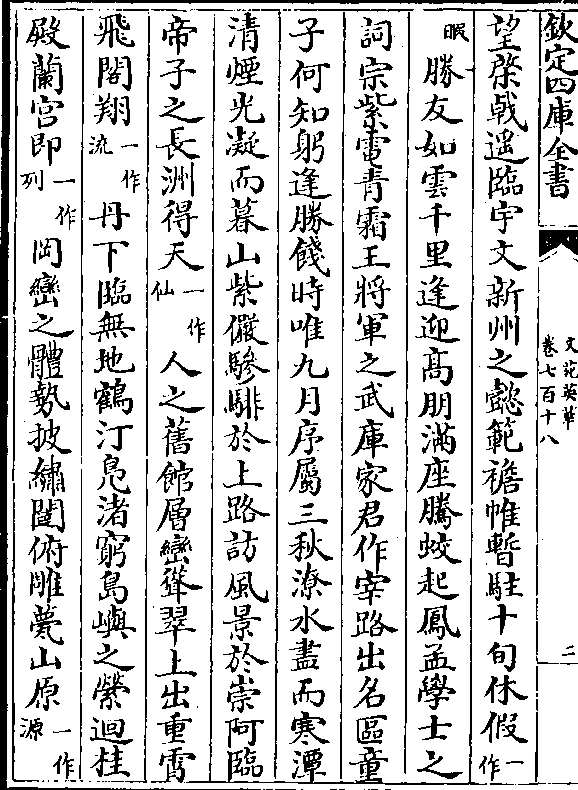 欽定四庫全書
文苑英華
卷七百十八
二
望棨㦸遥臨宇文新州之懿範襜帷暫駐十旬休假一作
暇勝友如雲千里逢迎髙朋滿座騰蛟起鳳孟學士之
詞宗紫電青霜王將軍之武庫家君作宰路出名區童
子何知躬逢勝餞時唯九月序屬三秋潦水盡而寒潭
清煙光凝而暮山紫儼驂騑於上路訪風景於崇阿臨
帝子之長洲得天一作仙人之舊館層巒聳翠上出重霄
飛閣翔一作流丹下臨無地鶴汀鳬渚窮島嶼之縈迴桂
殿蘭宫即一作列岡巒之體勢披繡闥俯雕甍山原一作源